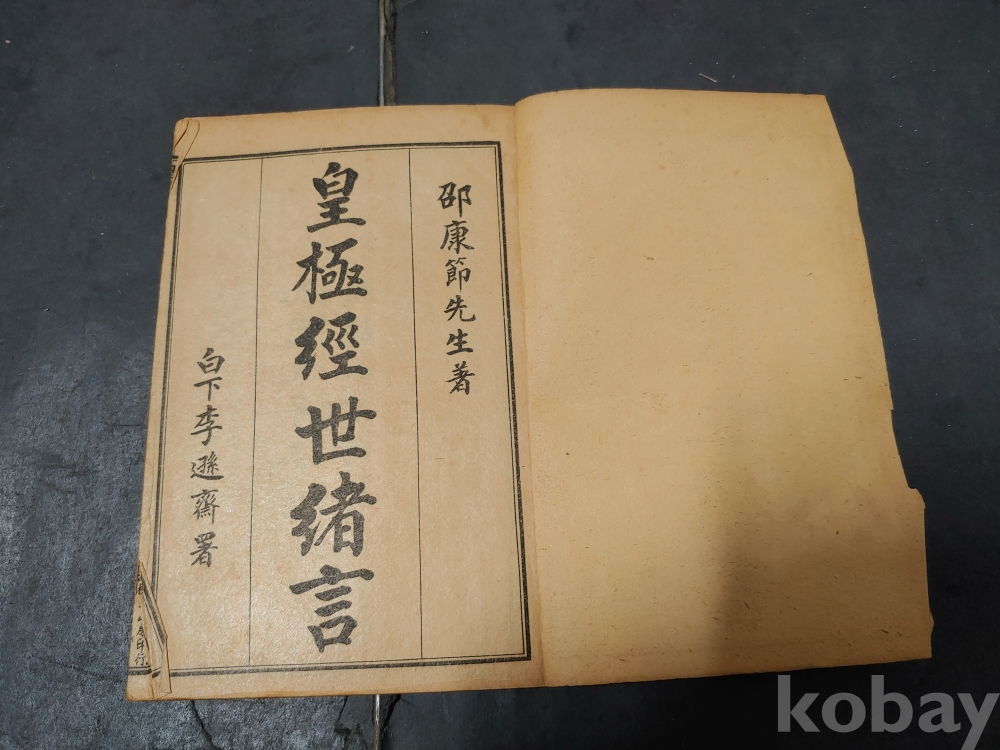 邵康節先生著
皇極經世緒言
白下李遜齋署
印行
kobay